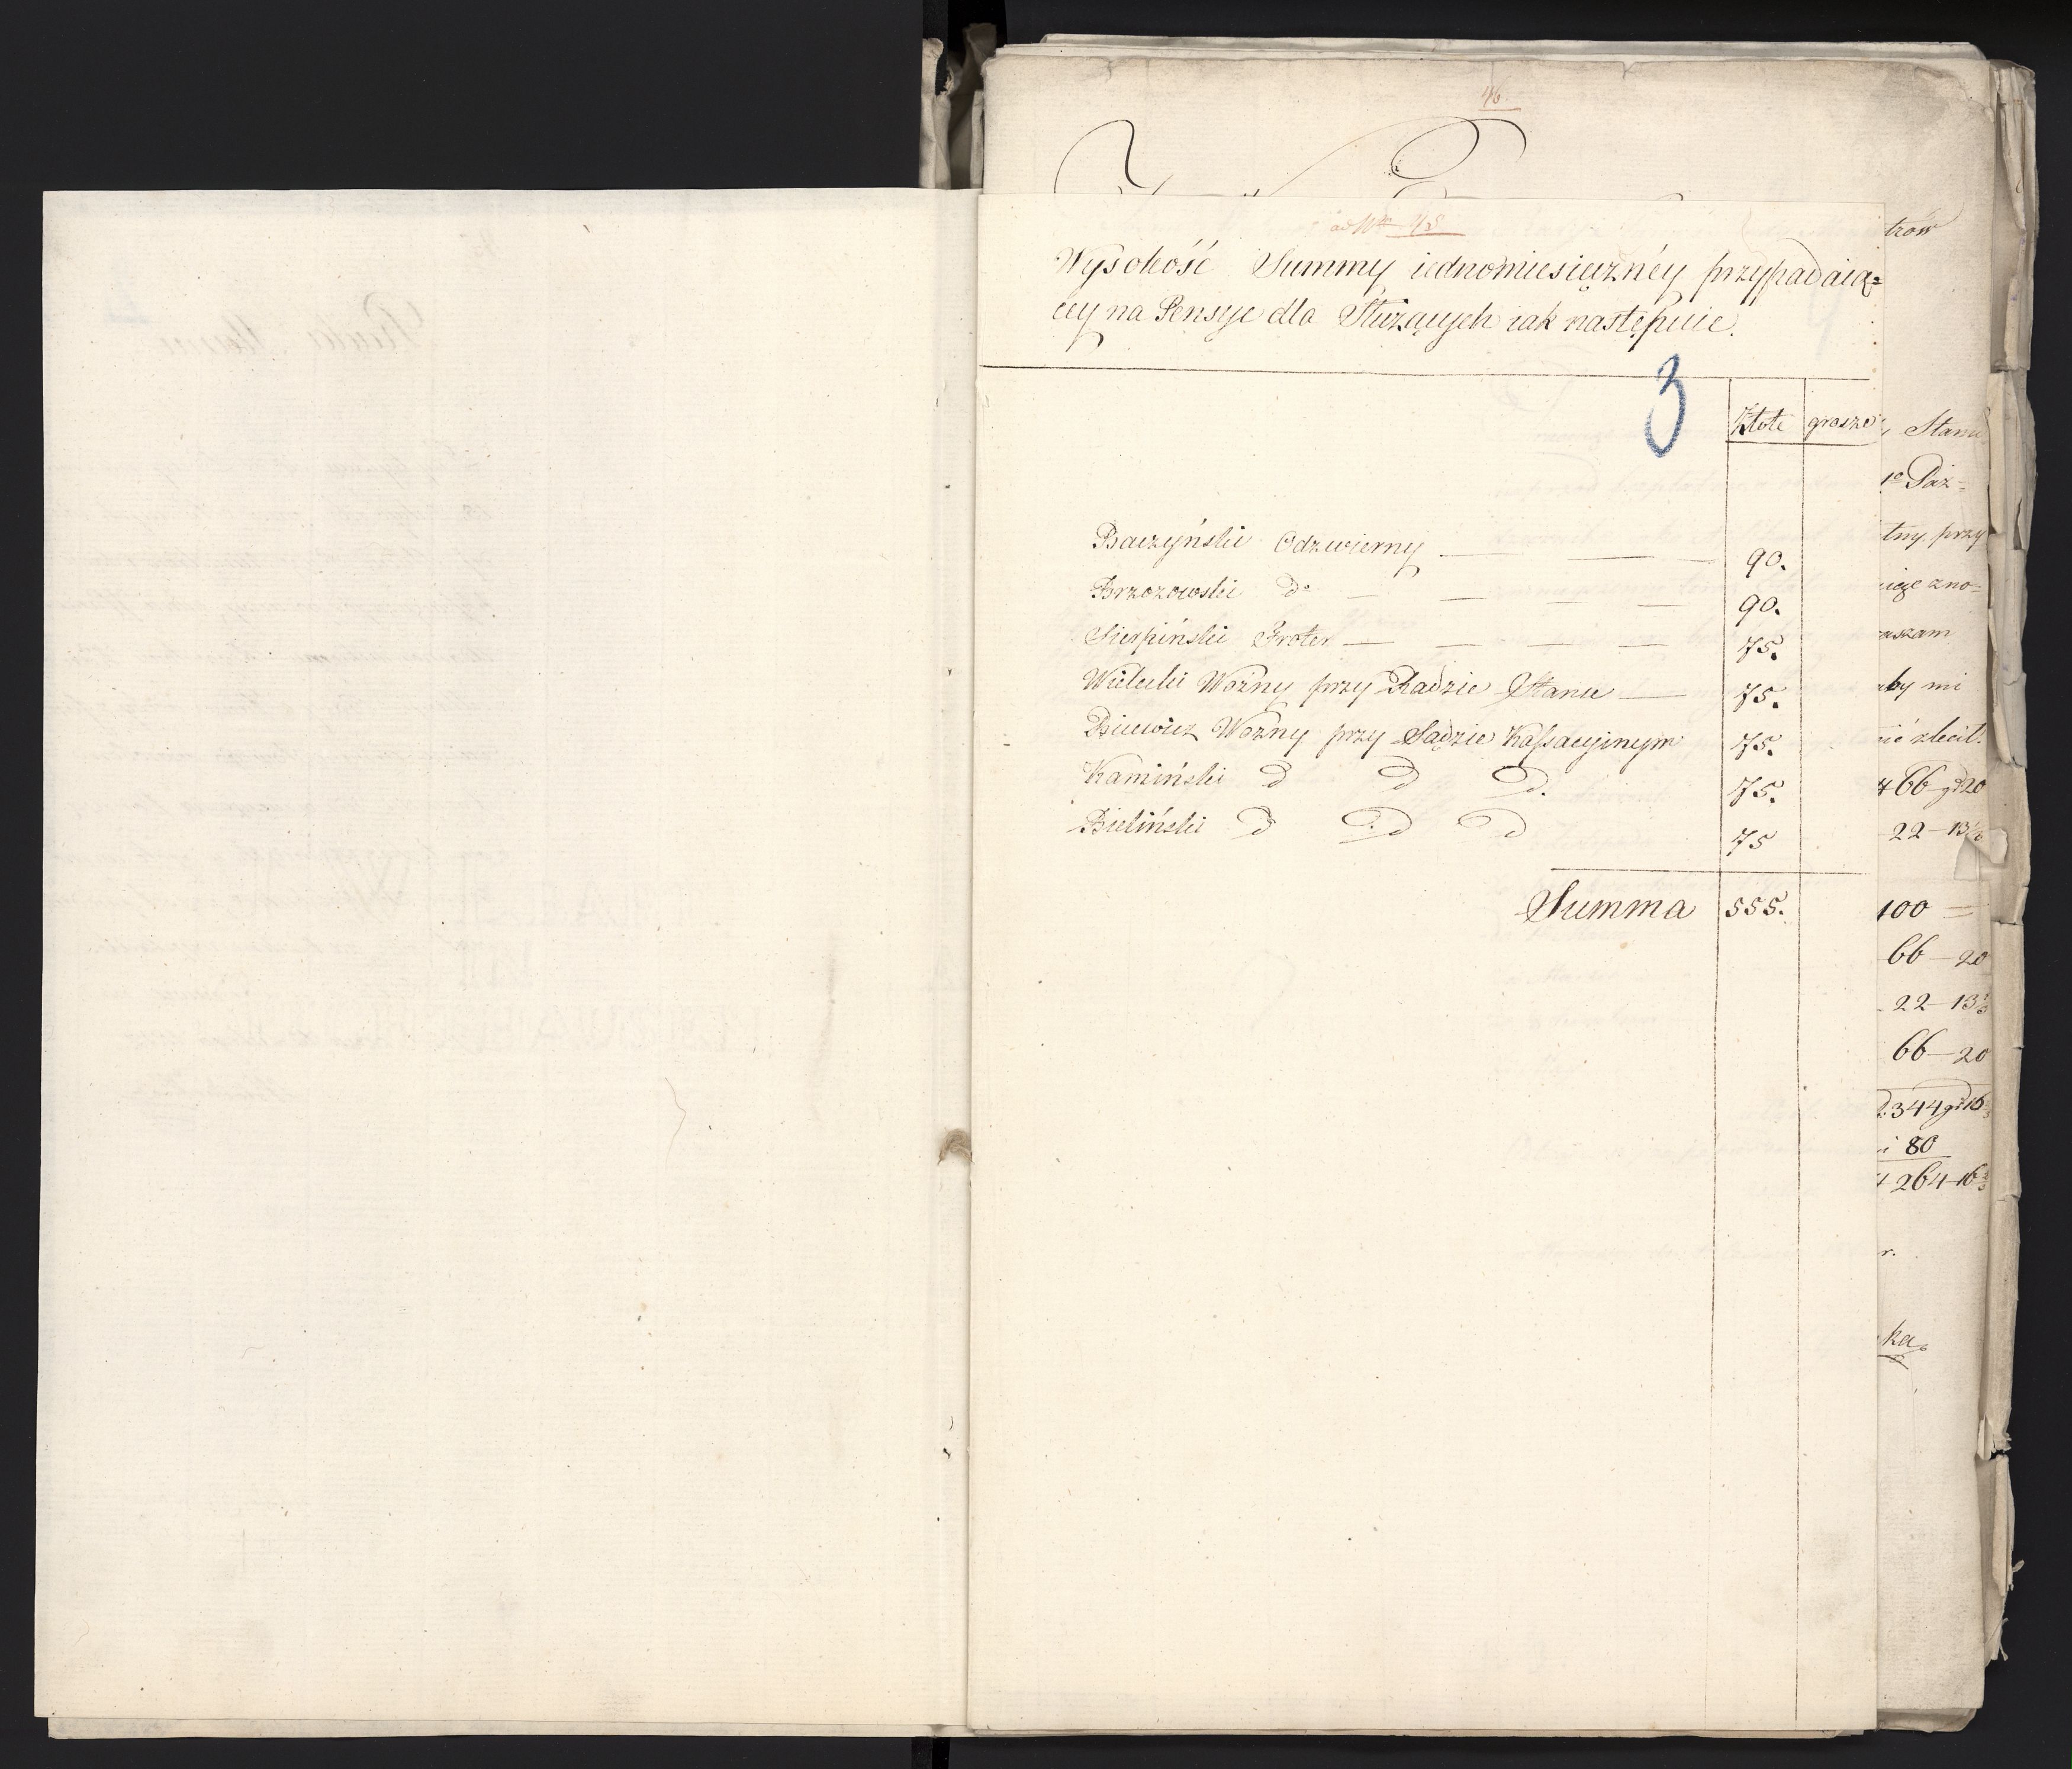 46.
ad Nrm 45
Wysokość Summy iednomiesięcznéy przypadaią=
cey na Pensye dla Służących iak następuie.
3
Złote grosze
Baczyński Odzwierny — — — 90.
Brzozowski do — — — — 90.
Sierpiński Froter — — — — 75.
Wielicki Woźny przy Radzie Stanu — 75.
Biciewicz Woźny przy Sądzie Kassacyjnym 75.
Kamiński d d d. 75.
Bieliński d d d 75
Summa 555.
trów
Stanu
1o Paź=
tny przy
zno=
aszam
aby mi
zlecił.
66 gr 20
22 — 13 1/3
100 =
66 — 20
22 — 13 1/3
66 — 20
344 gr 16 2/3
80
264 — 16 2/3
r.
ka